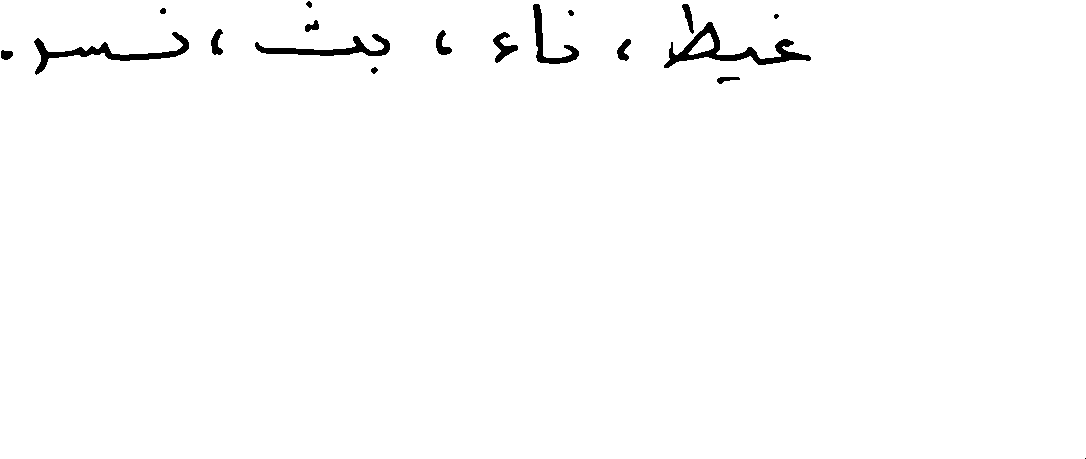 غيط ، ناء ، بث ، نسر .